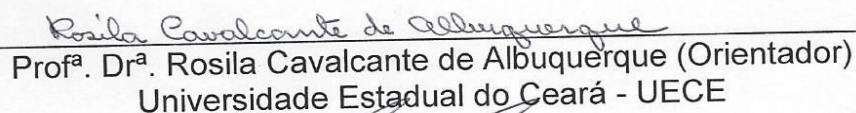 Rosila Cavalcante de Albuquerque
Profª. Drª. Rosila Cavalcante de Albuquerque (Orientador)
Universidade Estadual do Ceará - UECE